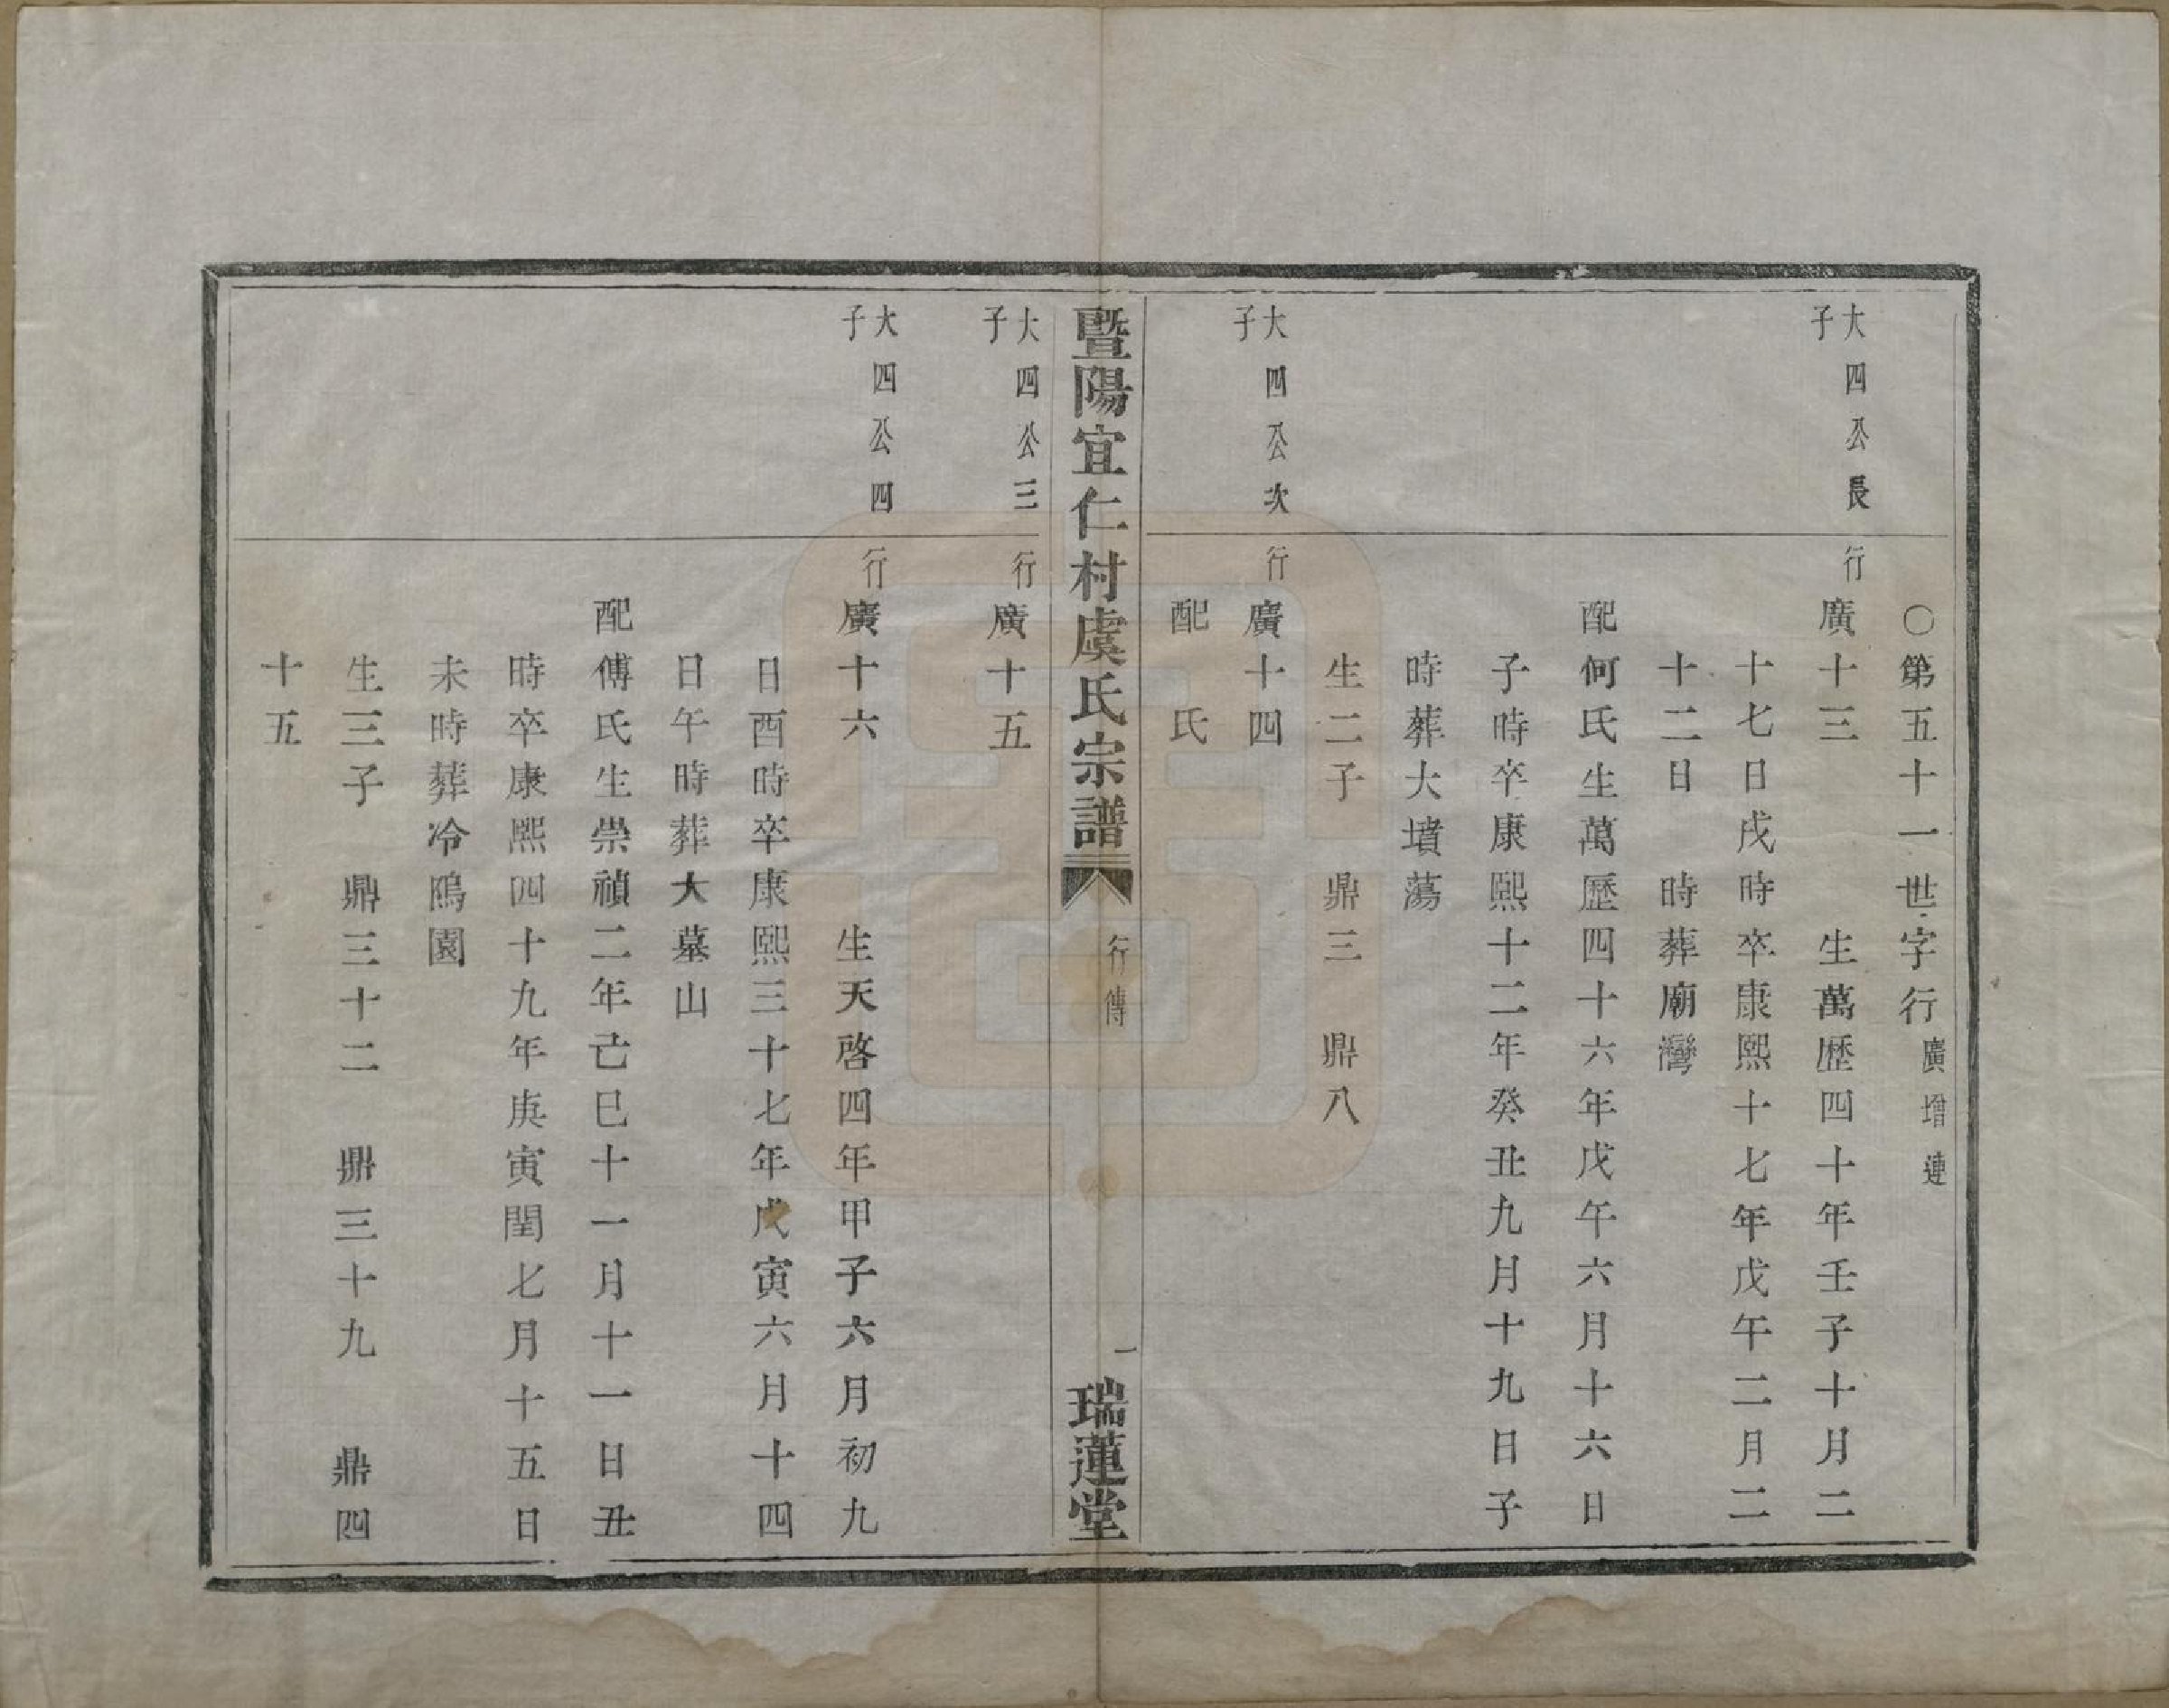 ○第五十一世字行廣增連
大四公長子
行廣十三　生萬歷四十年壬子十月二
十七日戌時卒康熙十七年戊午二月二
十二日　時葬廟灣
配何氏生萬歷四十六年戊午六月十六日
子時卒康熙十二年癸丑九月十九日子
時葬大墳蕩
生二子　鼎三　鼎八
大四公次子
行廣十四
配　氏
暨陽宜仁村虞氏宗譜　行傳　一　瑞蓮堂
大四公三子
行廣十五
大四公四子
行廣十六　生天啓四年甲子六月初九
日酉時卒康熙三十七年戊寅六月十四
日午時葬大墓山
配傅氏生崇禎二年己巳十一月十一日丑
時卒康熙四十九年庚寅閏七月十五日
未時葬冷隖園
生三子　鼎三十二　鼎三十九　鼎四
十五